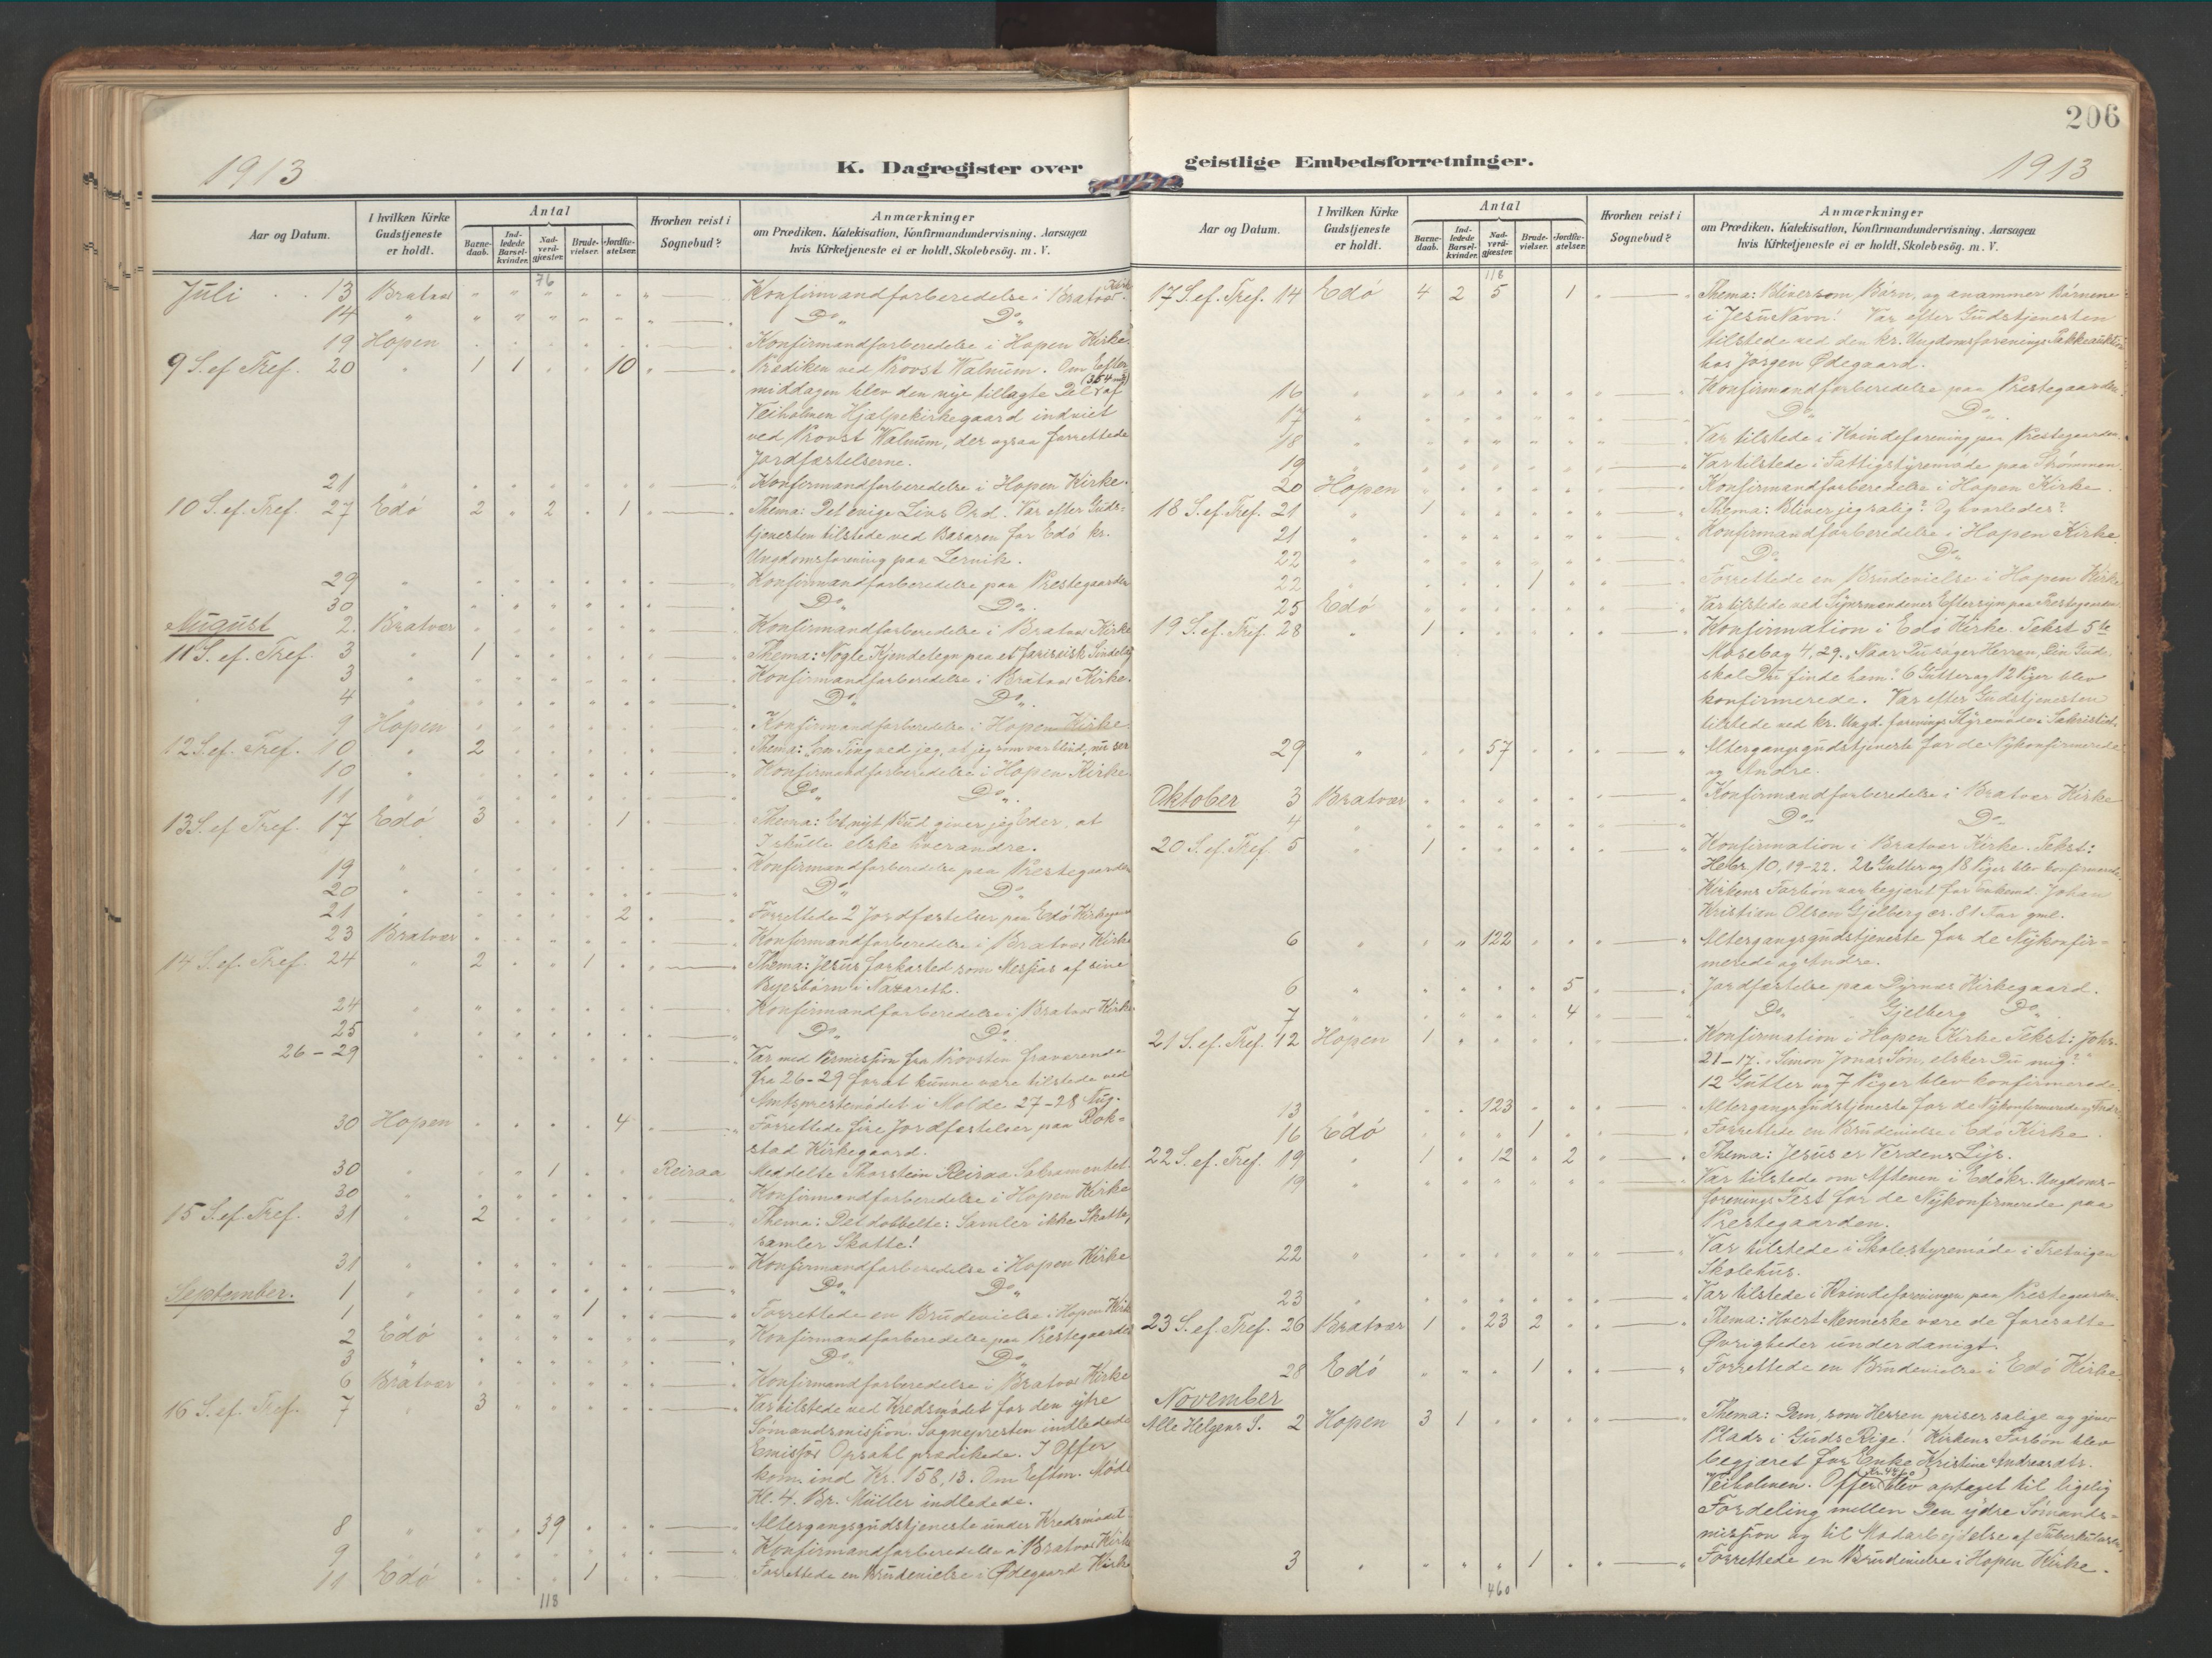 1913
K. Dagregister over
Aar og Datum.
I hvilken Kirke Gudstjeneste er holdt.
Antal
Barne-daab.
Ind-ledede Barsel-kvinder.
Nad-verd-gjæster.
Brude-vielser.
Jordfæ-stelser.
Hvorhen reist i Sognebud?
Anmærkninger
om Prædiken. Katekisation, Konfirmandundervisning. Aarsagen
hvis Kirketjeneste ei er holdt, Skolebesög. m. V.
76
Juli . . 13 Bratvær " " " " " " Konfirmandforberedelse i Bratvær Kirke
14 " " " " " " " Do Do
19 Hopen Konfirmandforberedelse i Hopen Kirke
9 S. ef. Tref. 20 " 1 1 10 Prædiken ved Provst Walnum. Om Efter-
middagen blev den nye tillagte Del af (354 m²)
Veiholmen Hjælpekirkegaard indviet
ved Provst Walnum, der ogsaa forrettede
Jordfæstelserne.
21 Konfirmandforberedelse i Hopen Kirke.
10 S. ef. Tref. 27 Edö 2 2 1 Thema: Det evige Livs Ord. Var efter Guds-
tjenesten tilstede ved Basaren for Edö kr.
Ungdomsforening paa Lervik.
29 Konfirmandforberedelse paa Prestegaarden
30 Do Do
August 2. Bratvær Konfirmandforberedelse i Bratvær Kirke
11 S. ef. Tref. 3 1 Thema: Nogle Kjendetegn paa et farisæisk Sindelag
3 Konfirmandforberedelse i Bratvær Kirke.
4 Do Do
9 Hopen Konfirmandforberedelse i Hopen Kirke
12 S. ef. Tref. 10 2 Thema: "Een Ting ved jeg, at jeg som var blind, nu ser
10 Konfirmandforberedelse i Hopen Kirke
11 Do Do
13 S. ef. Tref. 17 Edö 3 1 Thema: Et nyt Bud giver jeg Eder, at
I skulle elske hverandre.
19 Konfirmandforberedelse paa Prestegaarden
20 Do Do
21 2 Forrettede 2 Jordfæstelser paa Edö Kirkegaard
23 Bratvær Konfirmandforberedelse i Bratvær Kirke
14 S. ef. Tref. 24 2 1 Thema: Jesus forkasted som Messias af sine
Byesbørn i Nazareth.
24 Konfirmandforberedelse i Bratvær Kirke
25 Do Do
26-29 Var med Permission fra Provsten fraværende
fra 26-29 for at kunne være tilstede ved
Amtsprestemødet i Molde 27-28 Aug.
30 Hopen 4 Forrettede fire Jordfæstelser paa Rok-
stad Kirkegaard.
30 1 Reiraa Meddelte Thorstein Reiraa Sakramentet.
30 Konfirmandforberedelse i Hopen Kirke
15 S. ef. Tref. 31 2 Thema: Det dobbelte: Samler ikke Skatte,
samler Skatte!
31 Konfirmandforberedelse i Hopen Kirke
September. 1 Do Do
1 1 Forrettede en Brudevielse i Hopen Kirke
2 Edö Konfirmandforberedelse paa Prestegaarden
3 Do Do
6 Bratvær Konfirmandforberedelse i Bratvær Kirke
16 S. ef. Tref. 7 3 Var tilstede ved Kredsmødet for den ytre
Sömandsmission. Sognepresten indledede
Emissør Opsahl prædikede. I Offer
kom ind Kr. 158,13. Om Eftm. Møde
Kl. 4. Br. Müller indledede.
8 39 Altergangsgudstjeneste under Kredsmödet
9 Konfirmandforberedelse i Bratvær Kirke
11 Edö 1 Forrettede en Brudevielse i Ödegaard Kirke
118
206
geistlige Embedsforretninger.
1913
Aar og Datum.
I hvilken Kirke Gudstjeneste er holdt.
Antal
Barne-daab.
Ind-ledede Barsel-kvinder.
Nad-verd-gjæster.
Brude-vielser.
Jordfæ-stelser.
Hvorhen reist i Sognebud?
Anmærkninger
om Prædiken. Katekisation, Konfirmandundervisning. Aarsagen
hvis Kirketjeneste ei er holdt, Skolebesög. m. V.
118
17 S. ef. Tref. 14 Edö 4 2 5 1 Thema: Bliver som Börn, og anammer Börnene
i Jesu Navn! Var efter Gudstjenesten
tilstede ved den kr. Ungdomsforenings Pakkeauktion
hos Jörgen Ödegaard.
16 Konfirmandforberedelse paa Prestegaarden.
17 Do Do
18 Var tilstede i Kvindeforening paa Prestegaarden.
19 Var tilstede i Fattigstyremøde paa Strømmen.
20 Hopen Konfirmandforberedelse i Hopen Kirke.
18 S. ef. Tref. 21 1 Thema: Bliver jeg salig? Og hvorledes?
21 Konfirmandforberedelse i Hopen Kirke
22 Do Do
22 1 Forrettede en Brudevielse i Hopen Kirke
25 Edö Var tilstede ved Eftersyn paa Prestegaarden.
19 S. ef. Tref. 28 1 Konfirmation i Edö Kirke. Tekst 5te
Mosebog 4,29. "Naar Du söger Herren, Din Gud,
skal Du finde ham." 6 Gutter og 12 Piger blev
konfirmerede. Var efter Gudstjenesten
tilstede ved kr. Ungd. forenings Styremöde i Sakristiet.
29 57 Altergangsgudstjeneste for de Nykonfirmerede
og Andre.
Oktober 3 Bratvær Konfirmandforberedelse i Bratvær Kirke
4 Do Do
20 S. ef. Tref 5 1 Konfirmation i Bratvær Kirke. Tekst:
Hebr. 10, 19-22. 26 Gutter og 18 Piger blev konfirmerede.
Kirkens Forbön var begjæret for Johan
Kristian Olsen Gjelberg ær. 81 Aar gml.
6 122 Altergangsgudstjeneste for de Nykonfir-
merede og Andre.
6 5 Jordfæstelse paa Dyrnæs Kirkegaard.
7 4 Do Gjelberg Do
21 S. ef. Tref. 12 Hopen 1 Konfirmation i Hopen Kirke Tekst: Johs.
21-17. "Simon Jonas Søn, elsker Du mig?"
12 Gutter og 7 Piger blev konfirmerede.
13 123 Altergangsgudstjeneste for de Nykonfirmerede og Andre
16 Edö 1 Forrettede en Brudevielse i Edö Kirke.
22 S. ef. Tref. 19 1 12 2 Thema: Jesus er Verdens Lys.
19 Var tilstede om Aftenen i Edö kr. Ungdoms-
forenings Fest for de Nykonfirmerede paa
Prestegaarden.
22 Var tilstede i Skolestyremöde i Tretvigen
Skolehus.
23 Var tilstede i Kvindeforeningen paa Prestegaarden.
23 S. ef. Tref. 26 Bratvær 1 23 2 Thema: Hvert Menneske være de foresatte
Øvrigheder underdanigt.
28 Edö 1 Forrettede en Brudevielse i Edö Kirke.
November
Alle Helgens S. 2 Hopen 3 1 Thema: Dem, som Herren priser salige og giver
Plads i Guds Rige! Kirkens Forbön blev
begjæret for Enke Kristine
Veiholmen. Offer blev optaget til ligelig
Fordeling mellem Den ydre Sömands-
mission og til Modarbejdelse af Tuberkulosen.
3 1 Forrettede en Brudevielse i Hopen Kirke.
460